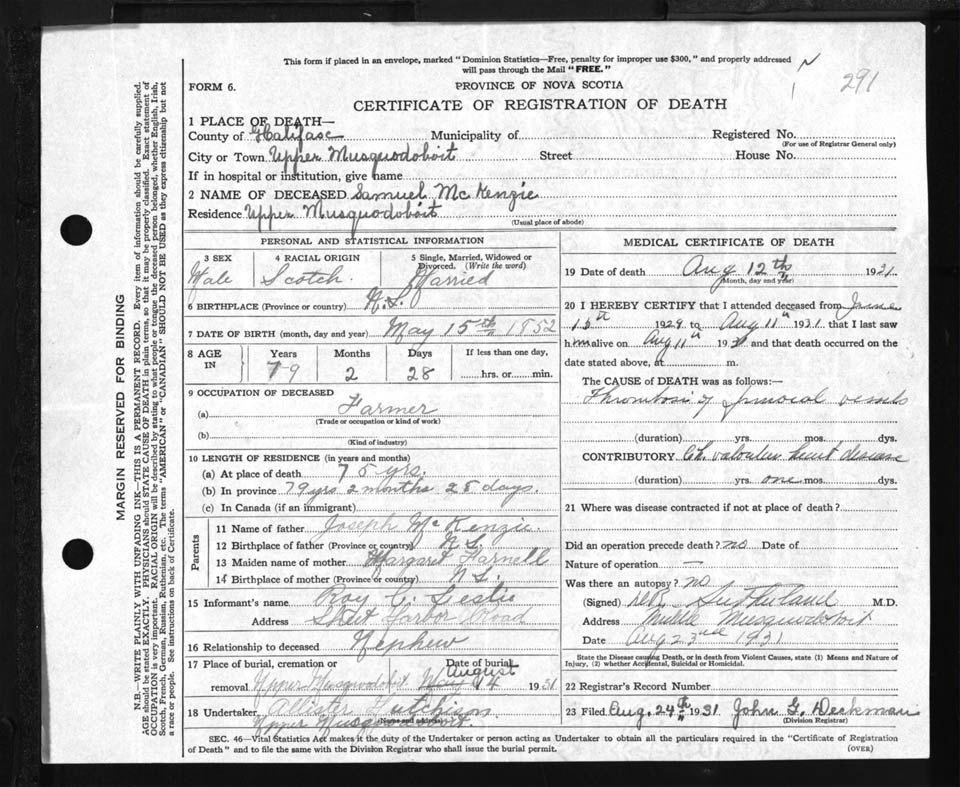 This form if placed in an envelope, marked "Dominion Statistics—Free, penalty for improper use $300," and properly addressed
will pass through the Mail "FREE."
291
FORM 6.
PROVINCE OF NOVA SCOTIA
CERTIFICATE OF REGISTRATION OF DEATH
1 PLACE OF DEATH—
County of Halifax Municipality of Registered No.
(For use of Registrar General only)
City or Town Upper Musquodoboit Street House No.
If in hospital or institution, give name
2 NAME OF DECEASED Samuel McKenzie
Residence Upper Musquodoboit
(Usual place of abode)
PERSONAL AND STATISTICAL INFORMATION
3 SEX 4 RACIAL ORIGIN 5 Single, Married, Widowed or
Divorced. (Write the word)
Male Scotch Married
6 BIRTHPLACE (Province or country) N.S.
7 DATE OF BIRTH (month, day and year) May 15th 1852
8 AGE IN Years Months Days If less than one day,
79 2 28 hrs. or min.
9 OCCUPATION OF DECEASED
(a) Farmer
(Trade or occupation or kind of work)
(b)
(Kind of industry)
10 LENGTH OF RESIDENCE (in years and months)
(a) At place of death 75 yrs.
(b) In province 79 yrs 2 months 28 days.
(c) In Canada (if an immigrant)
Parents
11 Name of father Joseph McKenzie
12 Birthplace of father (Province or country) N.S.
13 Maiden name of mother Margaret Farnell
14 Birthplace of mother (Province or country) N S.
15 Informant's name Roy C. Leslie
Address Sheet Harbor Road
16 Relationship to deceased Nephew
17 Place of burial, cremation or Date of burial
August
removal Upper Musquodoboit 14 1931
18 Undertaker Allister Hutchison
(Name and address)
Upper Musquodoboit.
MEDICAL CERTIFICATE OF DEATH
19 Date of death Aug 12th 1931
(Month, day and year)
20 I HEREBY CERTIFY that I attended deceased from June
15th 1929 to Aug 11th 1931 that I last saw
him alive on Aug 11th 1931 and that death occurred on the
date stated above, at m.
The CAUSE OF DEATH was as follows:—
Thrombosis of vessels
(duration) yrs. mos. dys.
CONTRIBUTORY Ch. valvular heart disease
(duration) yrs. one mos. dys.
21 Where was disease contracted if not at place of death?
Did an operation precede death? no Date of
Nature of operation —
Was there an autopsy? no
(Signed) Sutherland M.D.
Address Middle Musquodoboit
Date Aug 23rd 1931
State the Disease causing Death, or in death from Violent Causes, state (1) Means and Nature of
Injury, (2) whether Accidental, Suicidal or Homicidal.
22 Registrar's Record Number
23 Filed Aug. 24th 1931 John G. Deckman
(Division Registrar)
SEC. 46—Vital Statistics Act makes it the duty of the Undertaker or person acting as Undertaker to obtain all the particulars required in the "Certificate of Registration
of Death" and to file the same with the Division Registrar who shall issue the burial permit.
(OVER)
MARGIN RESERVED FOR BINDING
N.B.—WRITE PLAINLY WITH UNFADING INK—THIS IS A PERMANENT RECORD. Every item of information should be carefully supplied.
AGE should be stated EXACTLY. PHYSICIANS should STATE CAUSE OF DEATH in plain terms, so that it may be properly classified. Exact statement of
OCCUPATION is very important. RACIAL ORIGIN will be described by stating to what people or tongue the deceased person belonged, whether English, Irish,
Scotch, French, German, Russian, Ruthenian, etc. The terms "AMERICAN" or "CANADIAN" SHOULD NOT BE USED as they express citizenship but not
a race or people. See instructions on back of Certificate.